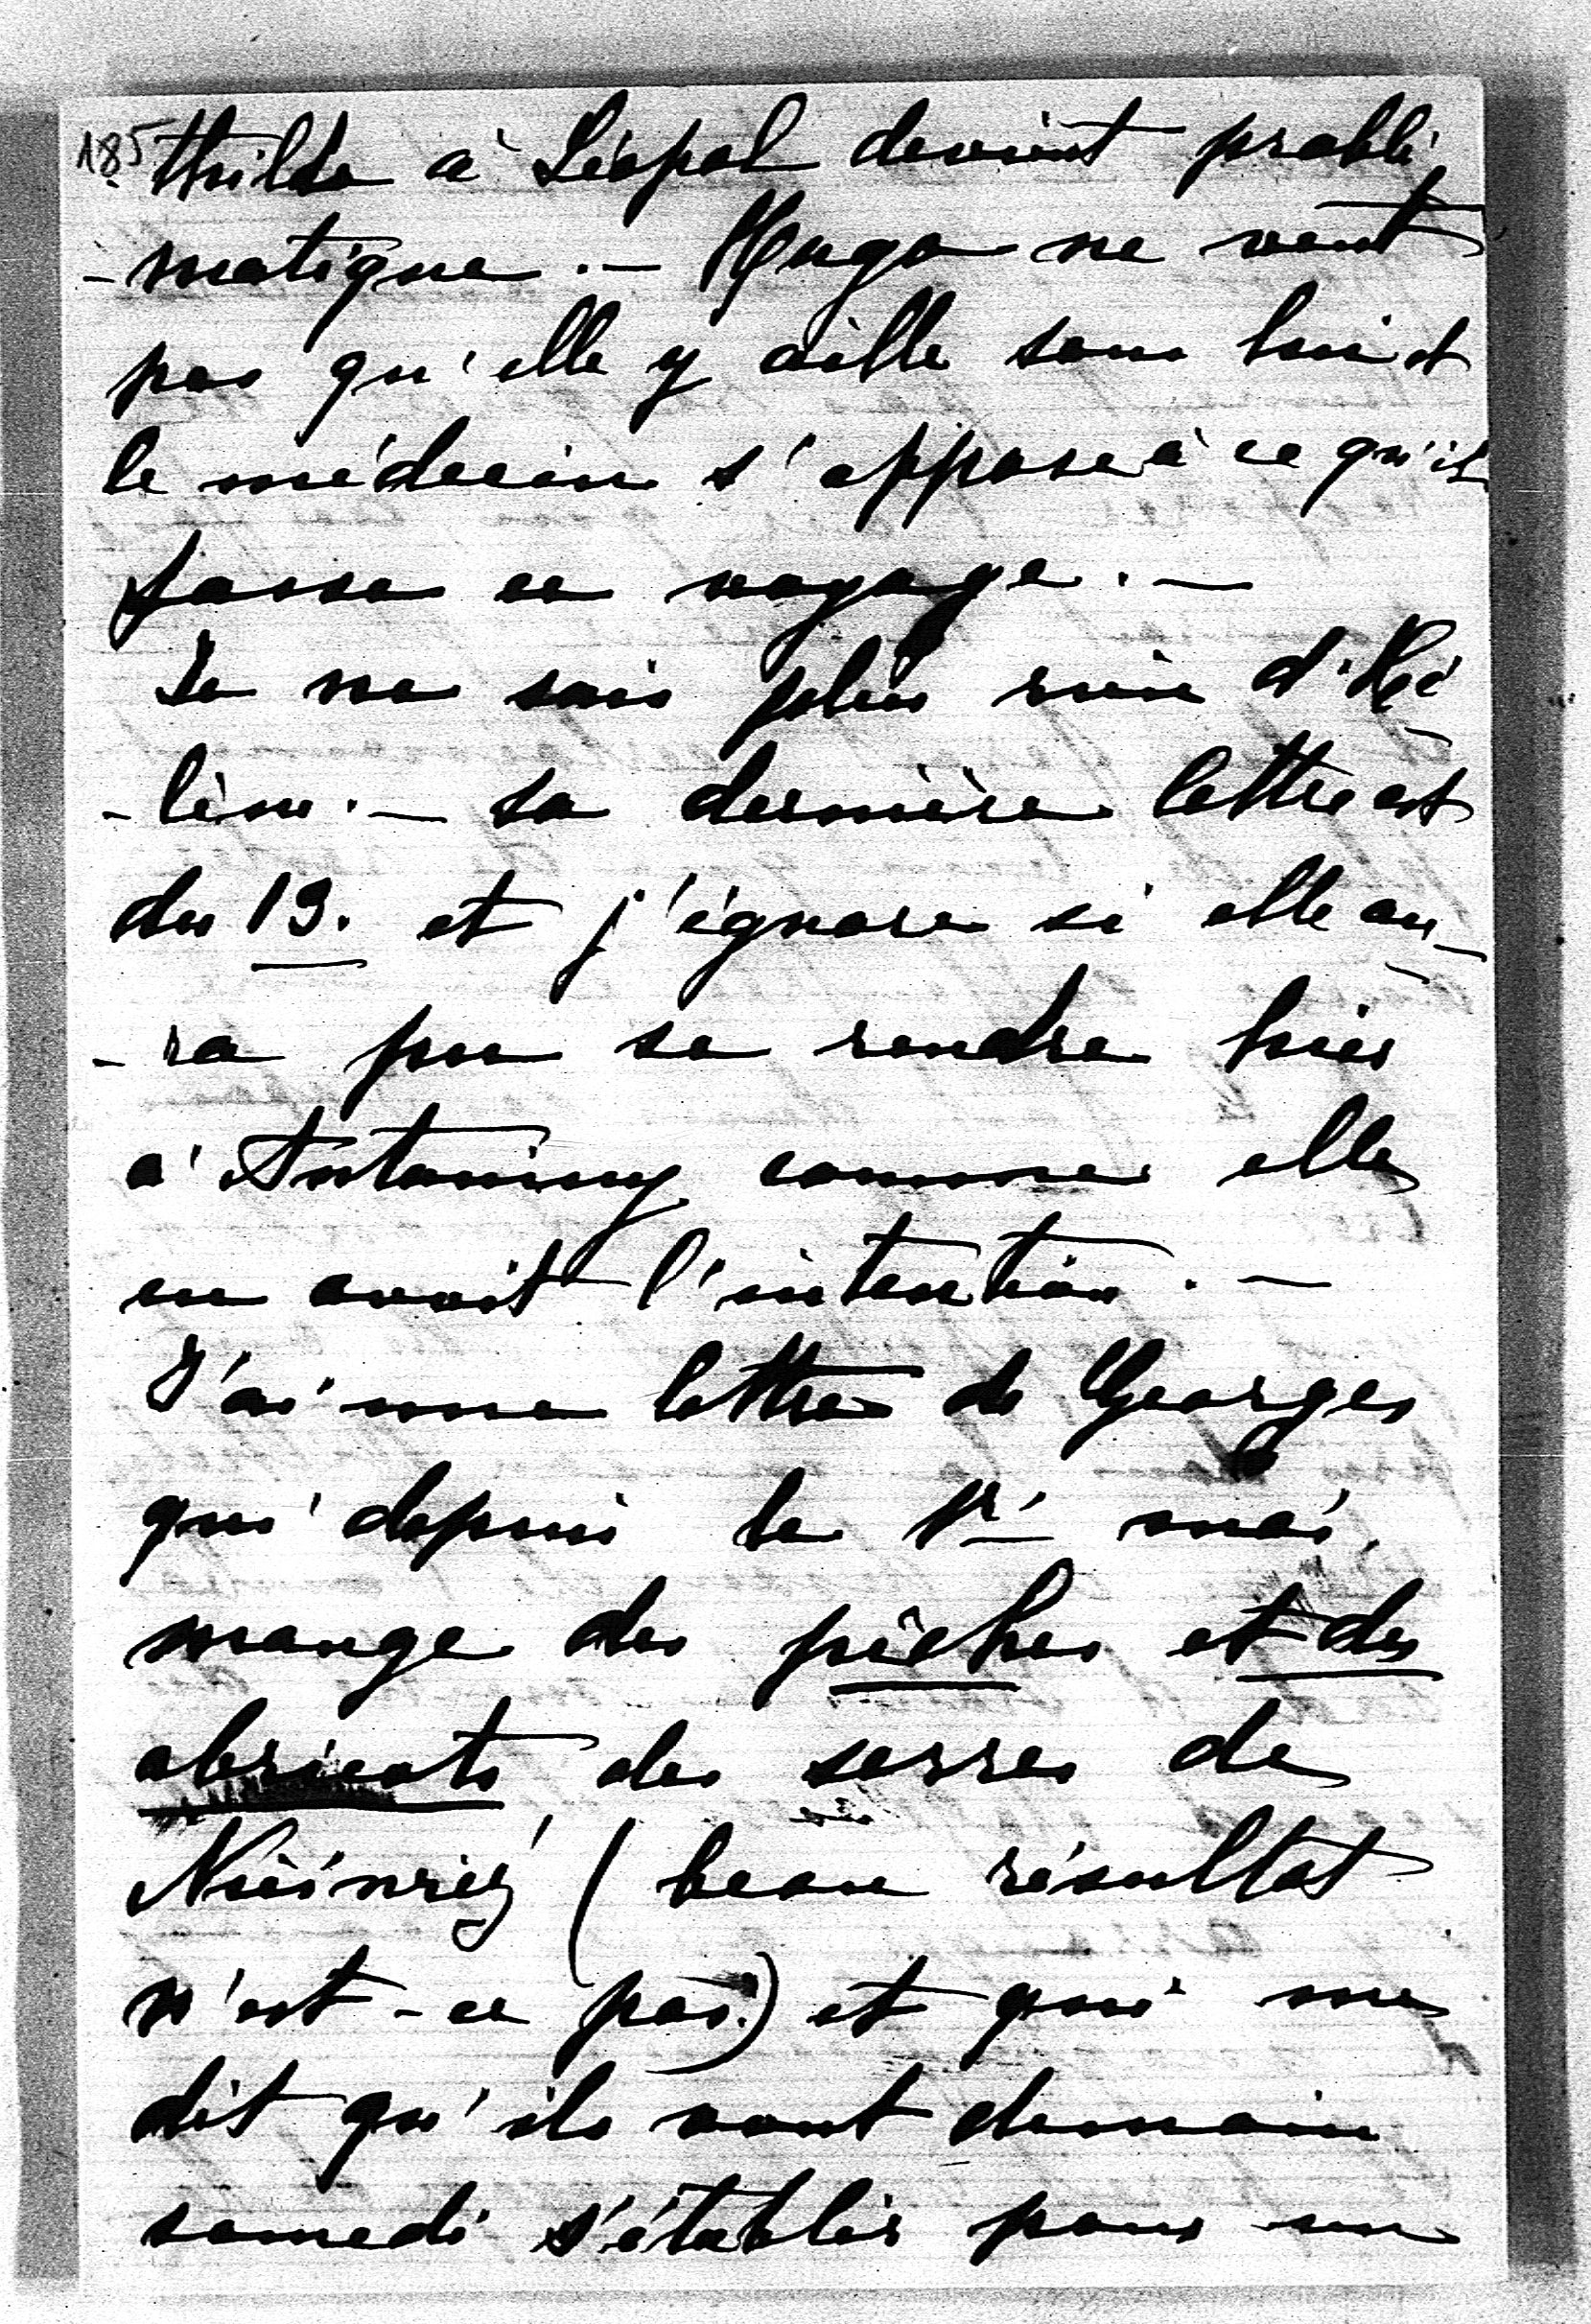 185.
thilde à Léopol devient problé
-matique. — Hugo ne veut
pas qu'elle y aille sans lui et
le médecin s'oppose à ce qu'il
fasse ce voyage. —
Je ne sais plus rien d'Hé
-lène. — sa dernière lettre est
du 13. et j'ignore si elle au-
-ra pu se rendre hier
à Antoniny comme elle
en avait l'intention. —
J'ai une lettre de Georges
qui depuis le 1r mai
mange des pêches et des
abricots des serres de
(beau résultat
n'est-ce pas) et qui me
dit qu'ils vont demain
samedi s'établir pour un